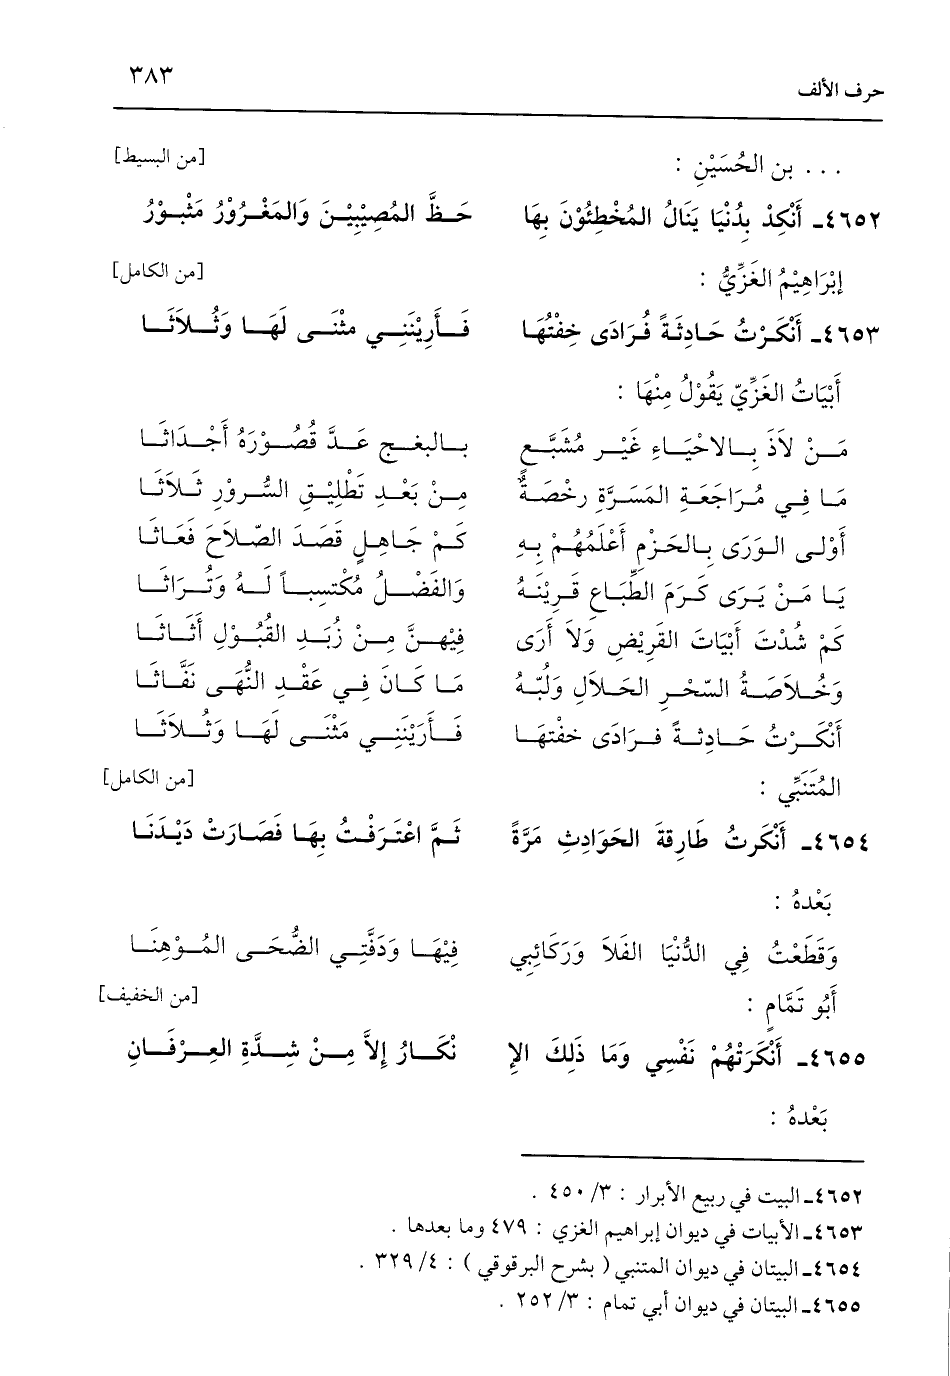 حرف الألف ٣٨٣
. . . بن الحُسَيْنِ : [من البسيط]
٤٦٥٢ـ أَنْكِدْ بِدُنْيَا يَنَالُ المُخْطِئُوْنَ بِهَا حَظَّ المُصِيْبِيْنَ وَالمَغْرُوْرُ مَثْبُوْرُ
إِبْرَاهِيْمُ الغَزِّيُّ : [من الكامل]
٤٦٥٣ـ أَنْكَرْتُ حَادِثَةً فُرَادَى خِفْتُهَا فَأَرِيْنَنِي مثْنَى لَهَا وَثُلاَثَا
أَبْيَاتُ الغَزِّيّ يَقُوْلُ مِنْهَا :
مَنْ لاَذَ بِالاحْيَاءِ غَيْر مُشَيَّعٍ بالبغج عَدَّ قُصُوْرَهُ أَجْدَاثَا
مَا فِي مُرَاجَعَةِ المَسَرَّةِ رخْصَةٌ مِنْ بَعْدِ تَطْلِيْقِ السُّرورِ ثَلاَثَا
أَوْلَى الوَرَى بِالحَزْمِ أَعْلَمُهُمْ بِهِ كَمْ جَاهِلٍ قَصَدَ الصّلاَحَ فَعَاثَا
يَا مَنْ يَرَى كَرَمَ الطِّبَاعِ قَرِيْنَهُ وَالفَضْلُ مُكْتسِباً لَهُ وَتُرَاثَا
كَمْ شُدْتَ أَبْيَاتَ القَرِيْضِ وَلاَ أَرَى فِيْهِنَّ مِنْ زُبَدِ القُبُوْلِ أَثَاثَا
وَخُلاَصَةُ السّحْرِ الحَلاَلِ وَلبّهُ مَا كَانَ فِي عَقْدِ النُّهَى نَفَّاثَا
أَنْكَرْتُ حَادِثةً فرَادَى خفْتهَا فَأَرَيْنَنِي مَثْنَى لَهَا وَثُلاَثَا
المُتَنَبِّي : [من الكامل]
٤٦٥٤ـ أَنْكَرتُ طَارِقةَ الحَوَادِثِ مَرَّةً ثَمَّ اعْتَرَفْتُ بِهَا فَصَارَتْ دَيْدَنَا
بَعْدهُ :
وَقَطَعْتُ فِي الدُّنْيَا الفَلاَ وَرَكَائِبِي فِيْهَا وَدَقَّتِي الضُّحَى المُوْهِنَا
أَبُو تَمَّامٍ : [من الخفيف]
٤٦٥٥ـ أَنْكَرَتْهُمْ نَفْسِي وَمَا ذَلِكَ الإ نْكَارُ إِلاَّ مِنْ شِدَّةِ العِرْفَانِ
بَعْدهُ :
٤٦٥٢ـ البيت في ربيع الأبرار : ٣/ ٤٥٠ .
٤٦٥٣ـ الأبيات في ديوان إبراهيم الغزي : ٤٧٩ وما بعدها .
٤٦٥٤ـ البيتان في ديوان المتنبي ( بشرح البرقوقي ) : ٤/ ٣٢٩ .
٤٦٥٥ـ البيتان في ديوان أبي تمام : ٣/ ٢٥٢ .